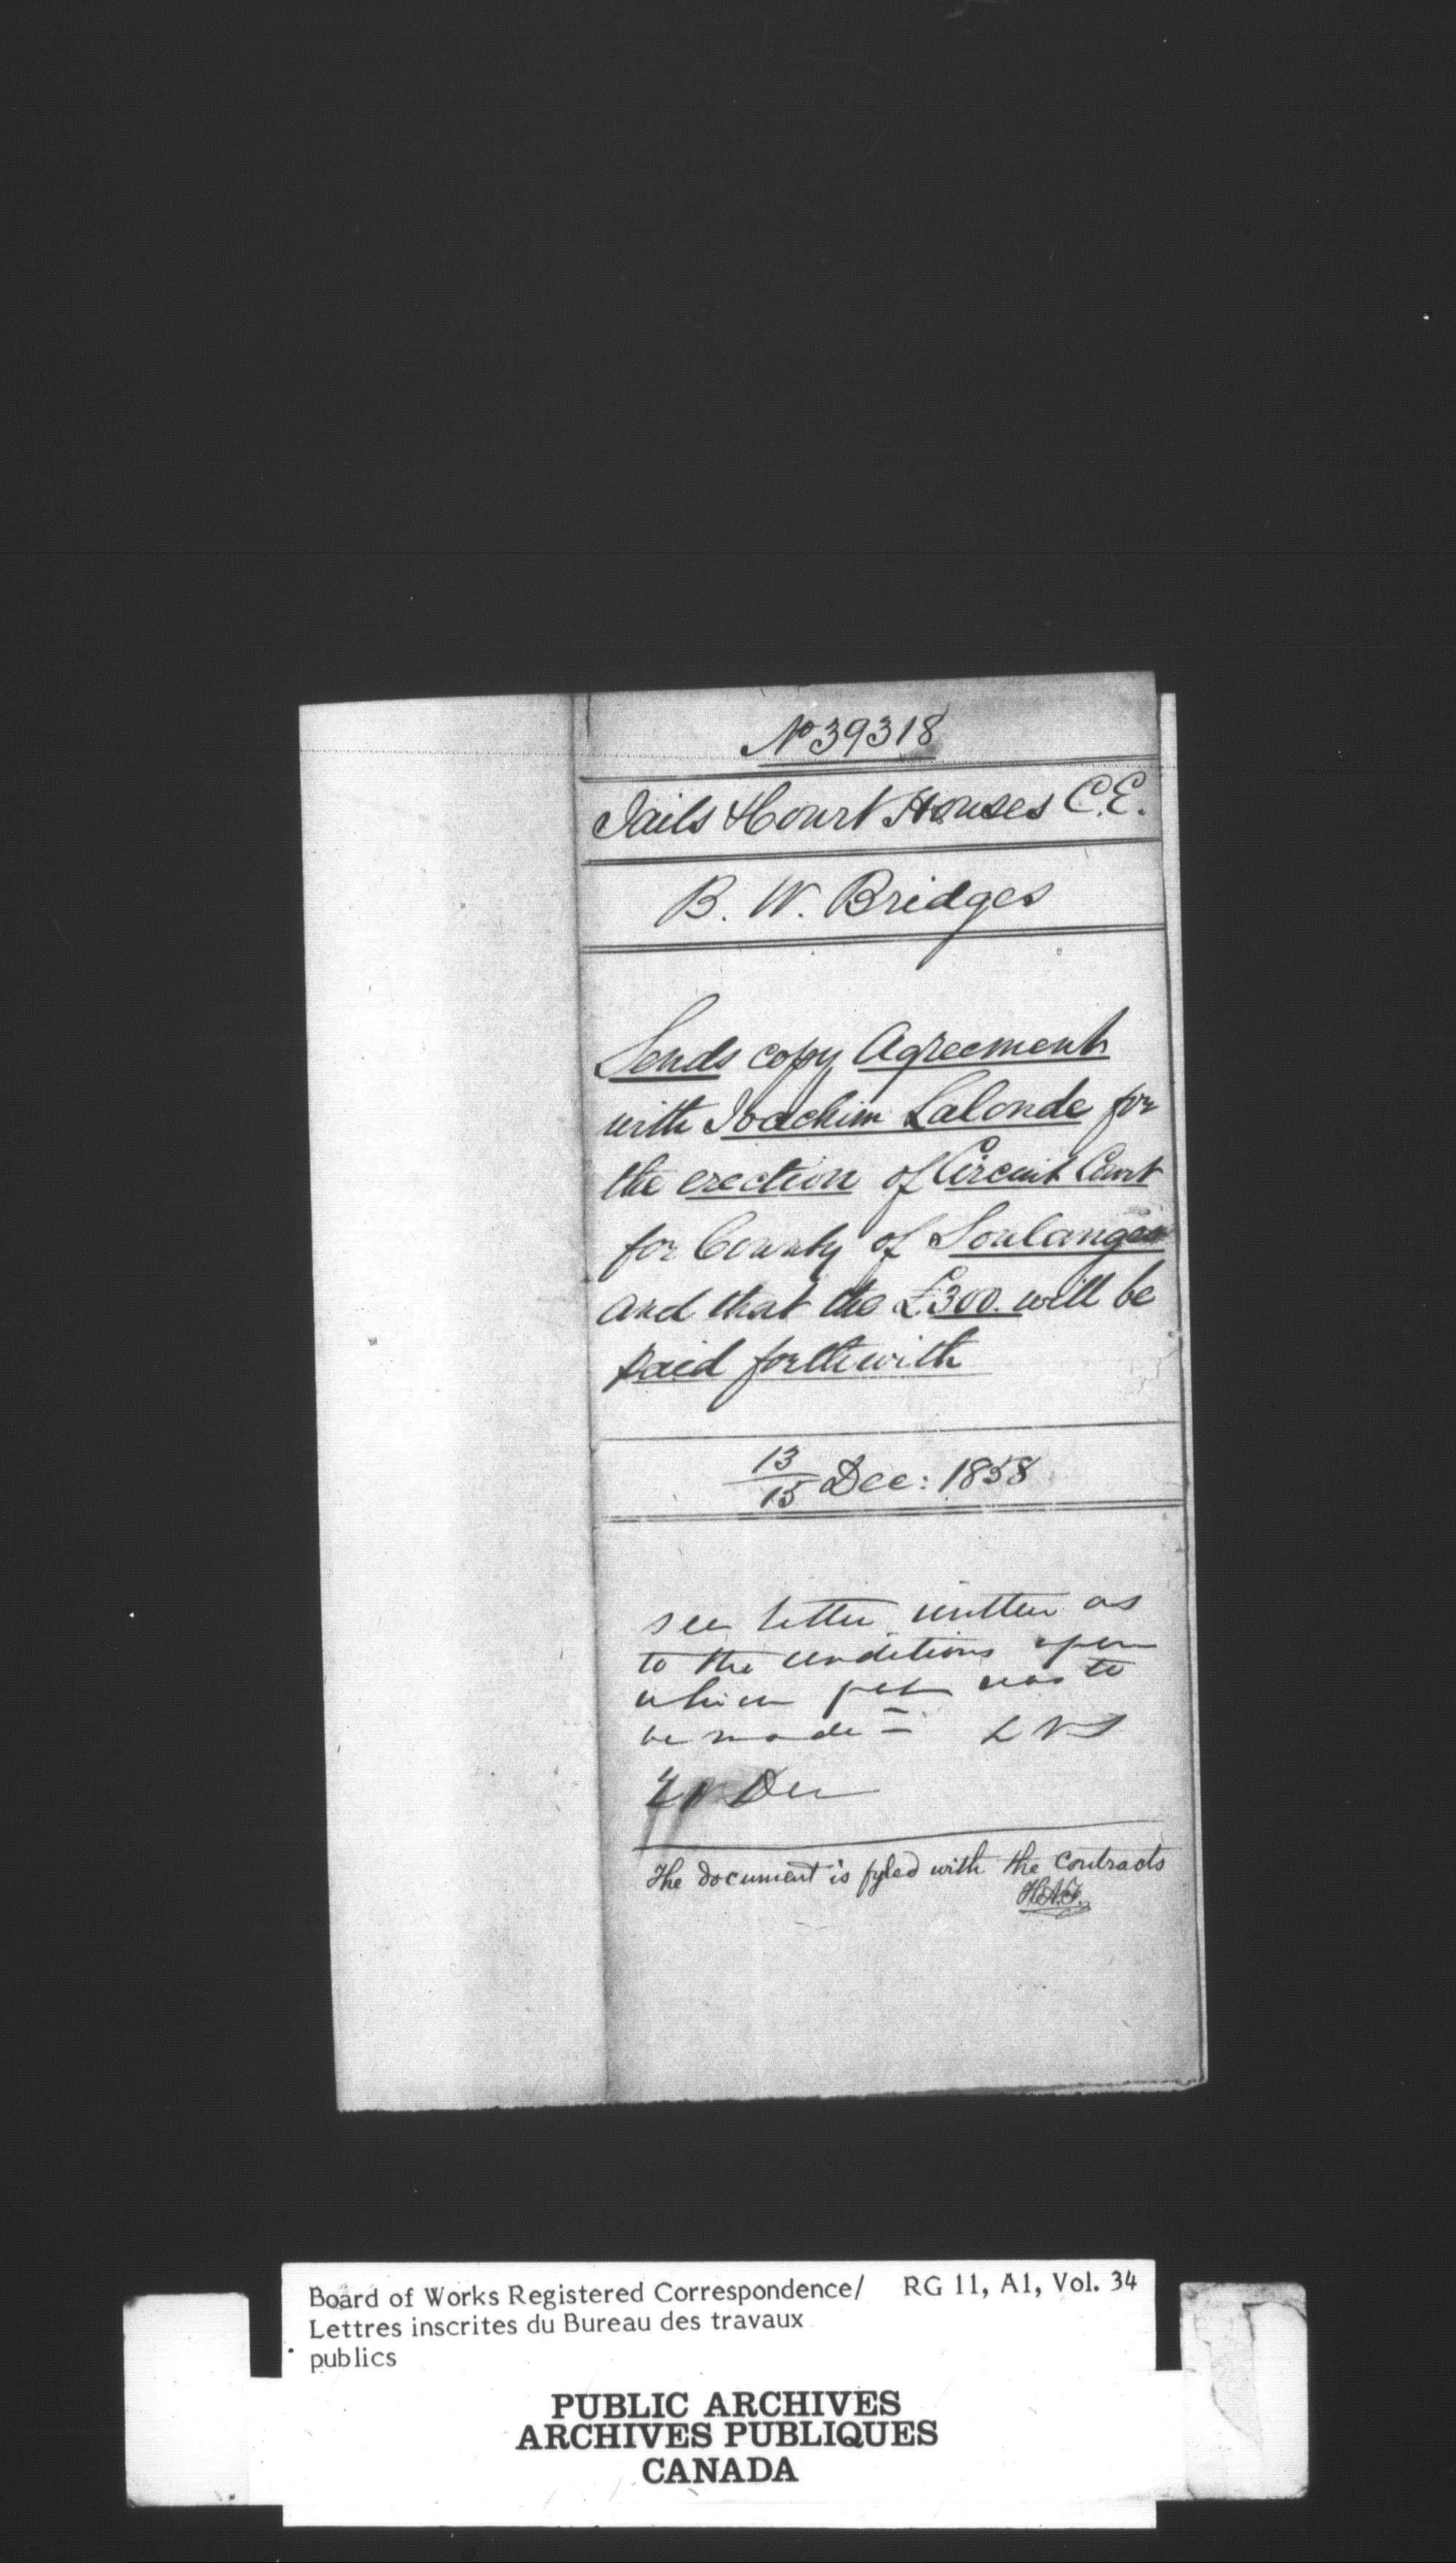 No 39318
Jails & Court Houses C.E.
B. W. Bridges
Sends copy Agreement
with Joachim Lalonde for
the erection of Circuit Court
for County of Soulanges
and that the £300. will be
paid forthwith
13/15 Dec: 1858
see letter written as
to the conditions upon
which was to
be made =
Dec
The document is fyled with the contracts
H.A.F.
Board of Works Registered Correspondence/ RG 11, A1, Vol. 34
Lettres inscrites du Bureau des travaux
publics
PUBLIC ARCHIVES
ARCHIVES PUBLIQUES
CANADA